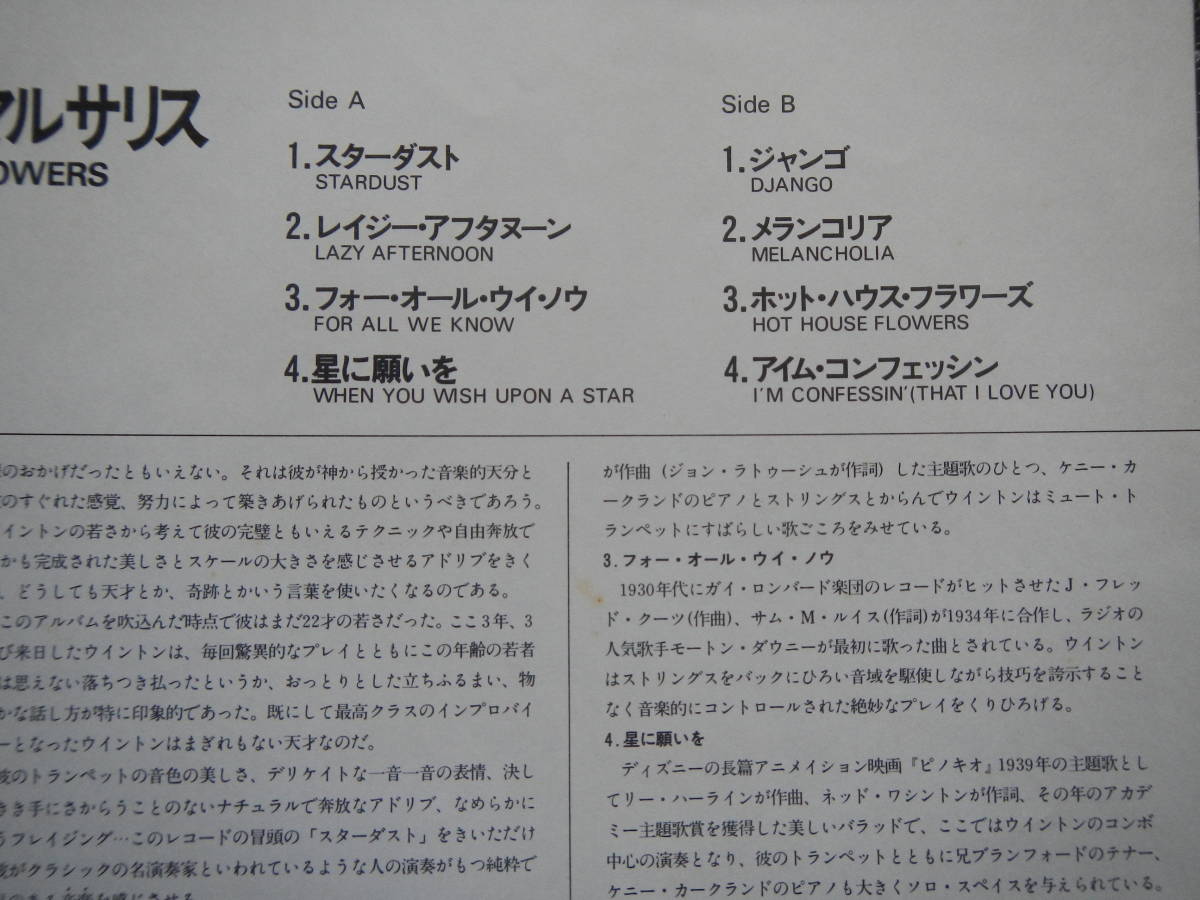 マルサリス
OWERS
Side A
1.スターダスト
STARDUST
2.レイジー・アフタヌーン
LAZY AFTERNOON
3.フォー・オール・ウイ・ノウ
FOR ALL WE KNOW
4.星に願いを
WHEN YOU WISH UPON A STAR
Side B
1.ジャンゴ
DJANGO
2.メランコリア
MELANCHOLIA
3.ホット・ハウス・フラワーズ
HOT HOUSE FLOWERS
4.アイム・コンフェッシン
I'M CONFESSIN'(THAT I LOVE YOU)
のおかげだったともいえない。それは彼が神から授かった音楽的天分と
のすぐれた感覚、努力によって築きあげられたものというべきであろう。
イントンの若さから考えて彼の完璧ともいえるテクニックや自由奔放で
かも完成された美しさとスケールの大きさを感じさせるアドリブをきく
、どうしても天才とか、奇跡とかいう言葉を使いたくなるのである。
このアルバムを吹込んだ時点で彼はまだ22才の若さだった。ここ3年、3
び来日したウイントンは、毎回驚異的なプレイとともにこの年齢の若者
は思えない落ちつき払ったというか、おっとりとした立ちふるまい、物
かな話し方が特に印象的であった。既にして最高クラスのインプロバイ
ーとなったウイントンはまぎれもない天才なのだ。
彼のトランペットの音色の美しさ、デリケイトな一音一音の表情、決し
きき手にさからうことのないナチュラルで奔放なアドリブ、なめらかに
うフレイジング…このレコードの冒頭の「スターダスト」をきいただけ
彼がクラシックの名演奏家といわれているような人の演奏がもつ純粋で
が作曲（ジョン・ラトゥーシュが作詞）した主題歌のひとつ、ケニー・カ
ークランドのピアノとストリングスとからんでウイントンはミュート・ト
ランペットにすばらしい歌ごころをみせている。
3.フォー・オール・ウイ・ノウ
1930年代にガイ・ロンバード楽団のレコードがヒットさせたJ・フレッ
ド・クーツ(作曲)、サム・M・ルイス(作詞)が1934年に合作し、ラジオの
人気歌手モートン・ダウニーが最初に歌った曲とされている。ウイントン
はストリングスをバックにひろい音域を駆使しながら技巧を誇示すること
なく音楽的にコントロールされた絶妙なプレイをくりひろげる。
4.星に願いを
ディズニーの長篇アニメイション映画『ピノキオ』1939年の主題歌とし
てリー・ハーラインが作曲、ネッド・ワシントンが作詞、その年のアカデ
ミー主題歌賞を獲得した美しいバラッドで、ここではウイントンのコンボ
中心の演奏となり、彼のトランペットとともに兄ブランフォードのテナー、
ケニー・カークランドのピアノも大きくソロ・スペイスを与えられている。